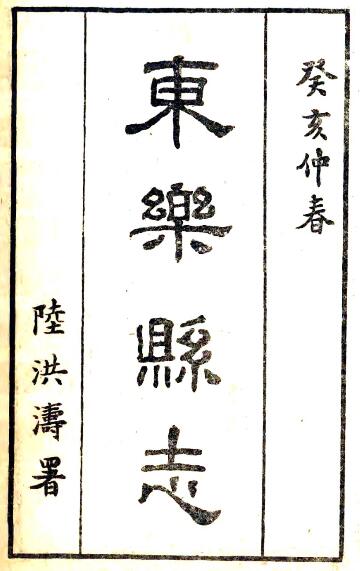 癸亥仲春
東樂縣志
陸洪濤署